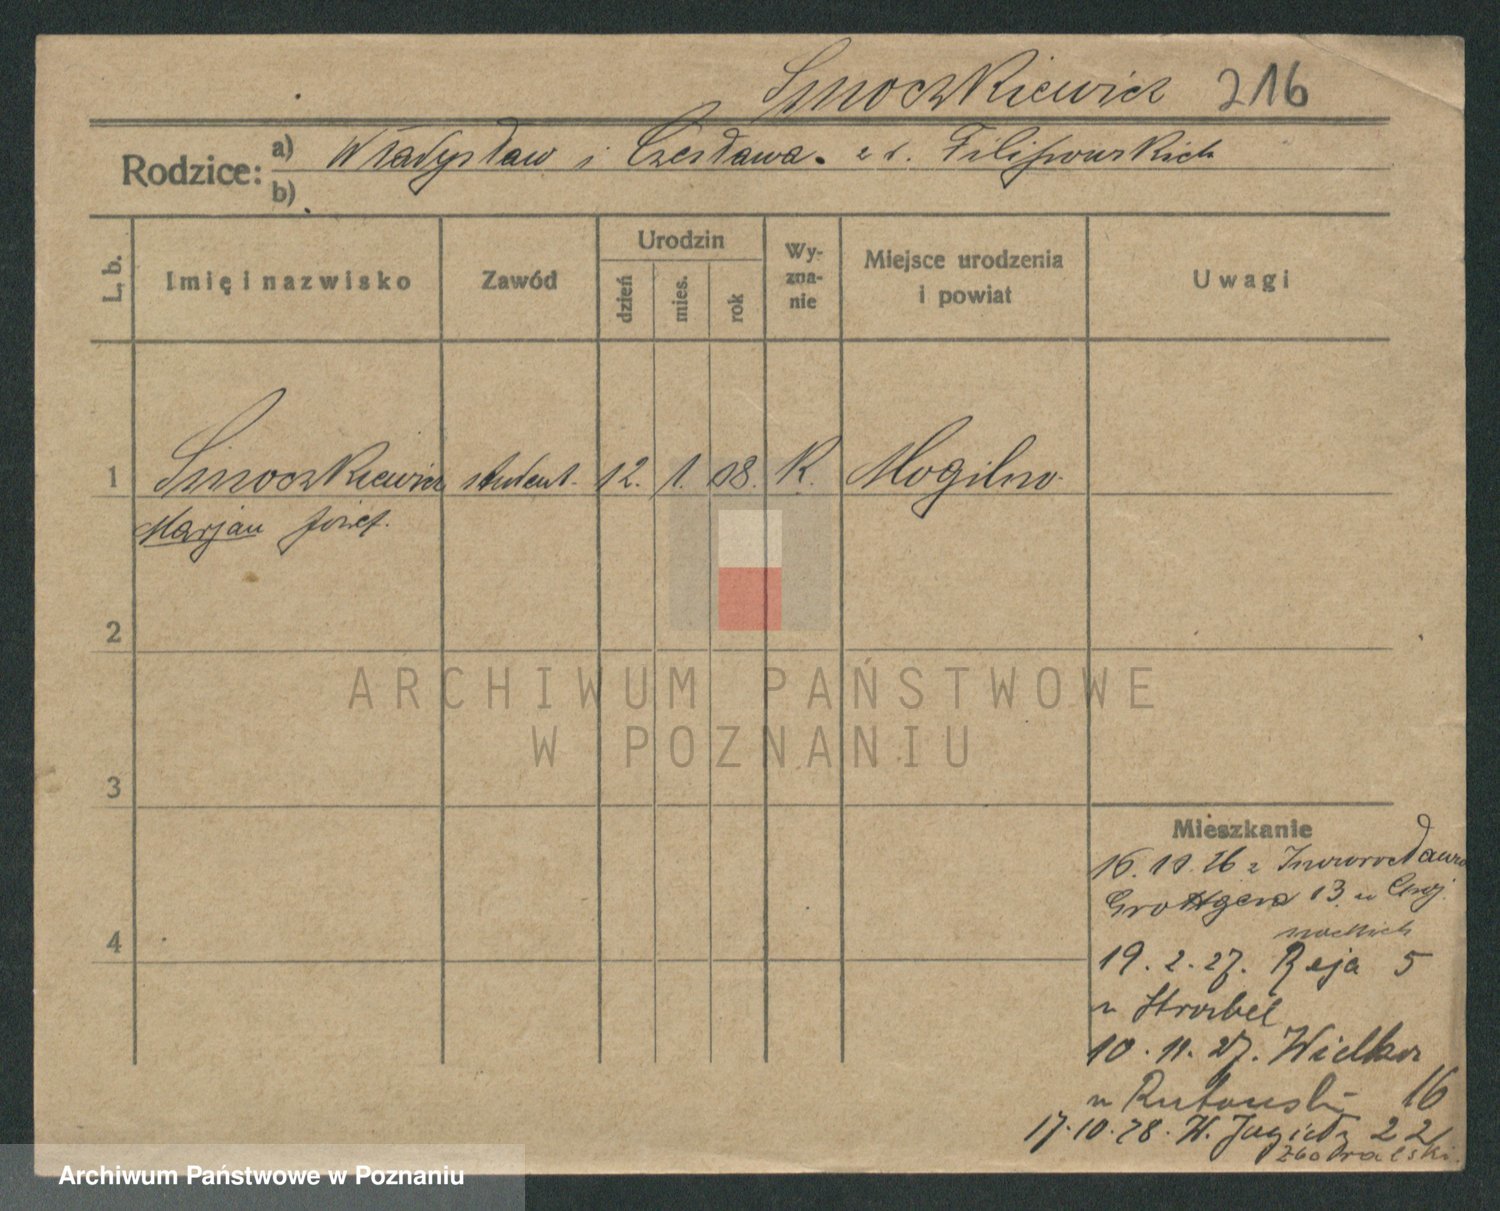 Smoczkiewicz 216
Rodzice: a) Władysław i Czesława. z d. Filipowskich
b)
L. b.
Imię i nazwisko
Zawód
Urodzin
dzień
mies.
rok
Wy-
zna-
nie
Miejsce urodzenia
i powiat
Uwagi
1 Smoczkiewicz student. 12. 1. 08. K. Mogilno.
Marjan Józef.
2
3
4
Mieszkanie
16.11.26 z Inowrocławia
Grottgera 13. u
19.2.27. Reja 5
u Strobel
10.11.27. Wielka
u Rutowski 16
17.10.28. W. Jagiełły 22
ARCHIWUM PAŃSTWOWE
W POZNANIU
Archiwum Państwowe w Poznaniu